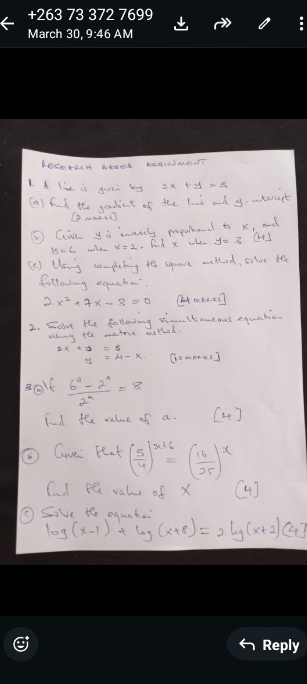 +263 73 372 7699
March 30, 9:46 AM
RESEARCH BASED ASSIGNMENT
1. A line is given by 2x + y = 5
(a) find the gradient of the line and y-intercept
[2 marks]
(b) Given y is inversely proportional to x, and
y=6 when x=2. find x when y=3 [4]
(c) Using completing the square method, solve the
following equation.
2x² + 7x - 3 = 0 [4 marks]
2. Solve the following simultaneous equation
using the matrix method.
2x + y = 5
y = 4 - x. [10 marks]
3 (a) If (6ᵃ - 2ᵃ)/2ᵃ = 8
find the value of a. [4]
(b) Given that (5/4)ˣ⁺⁶ = (16/25)ˣ
find the value of x [4]
(c) Solve the equation
log(x-1) + log(x+8) = 2 log(x+2) [4]
Reply